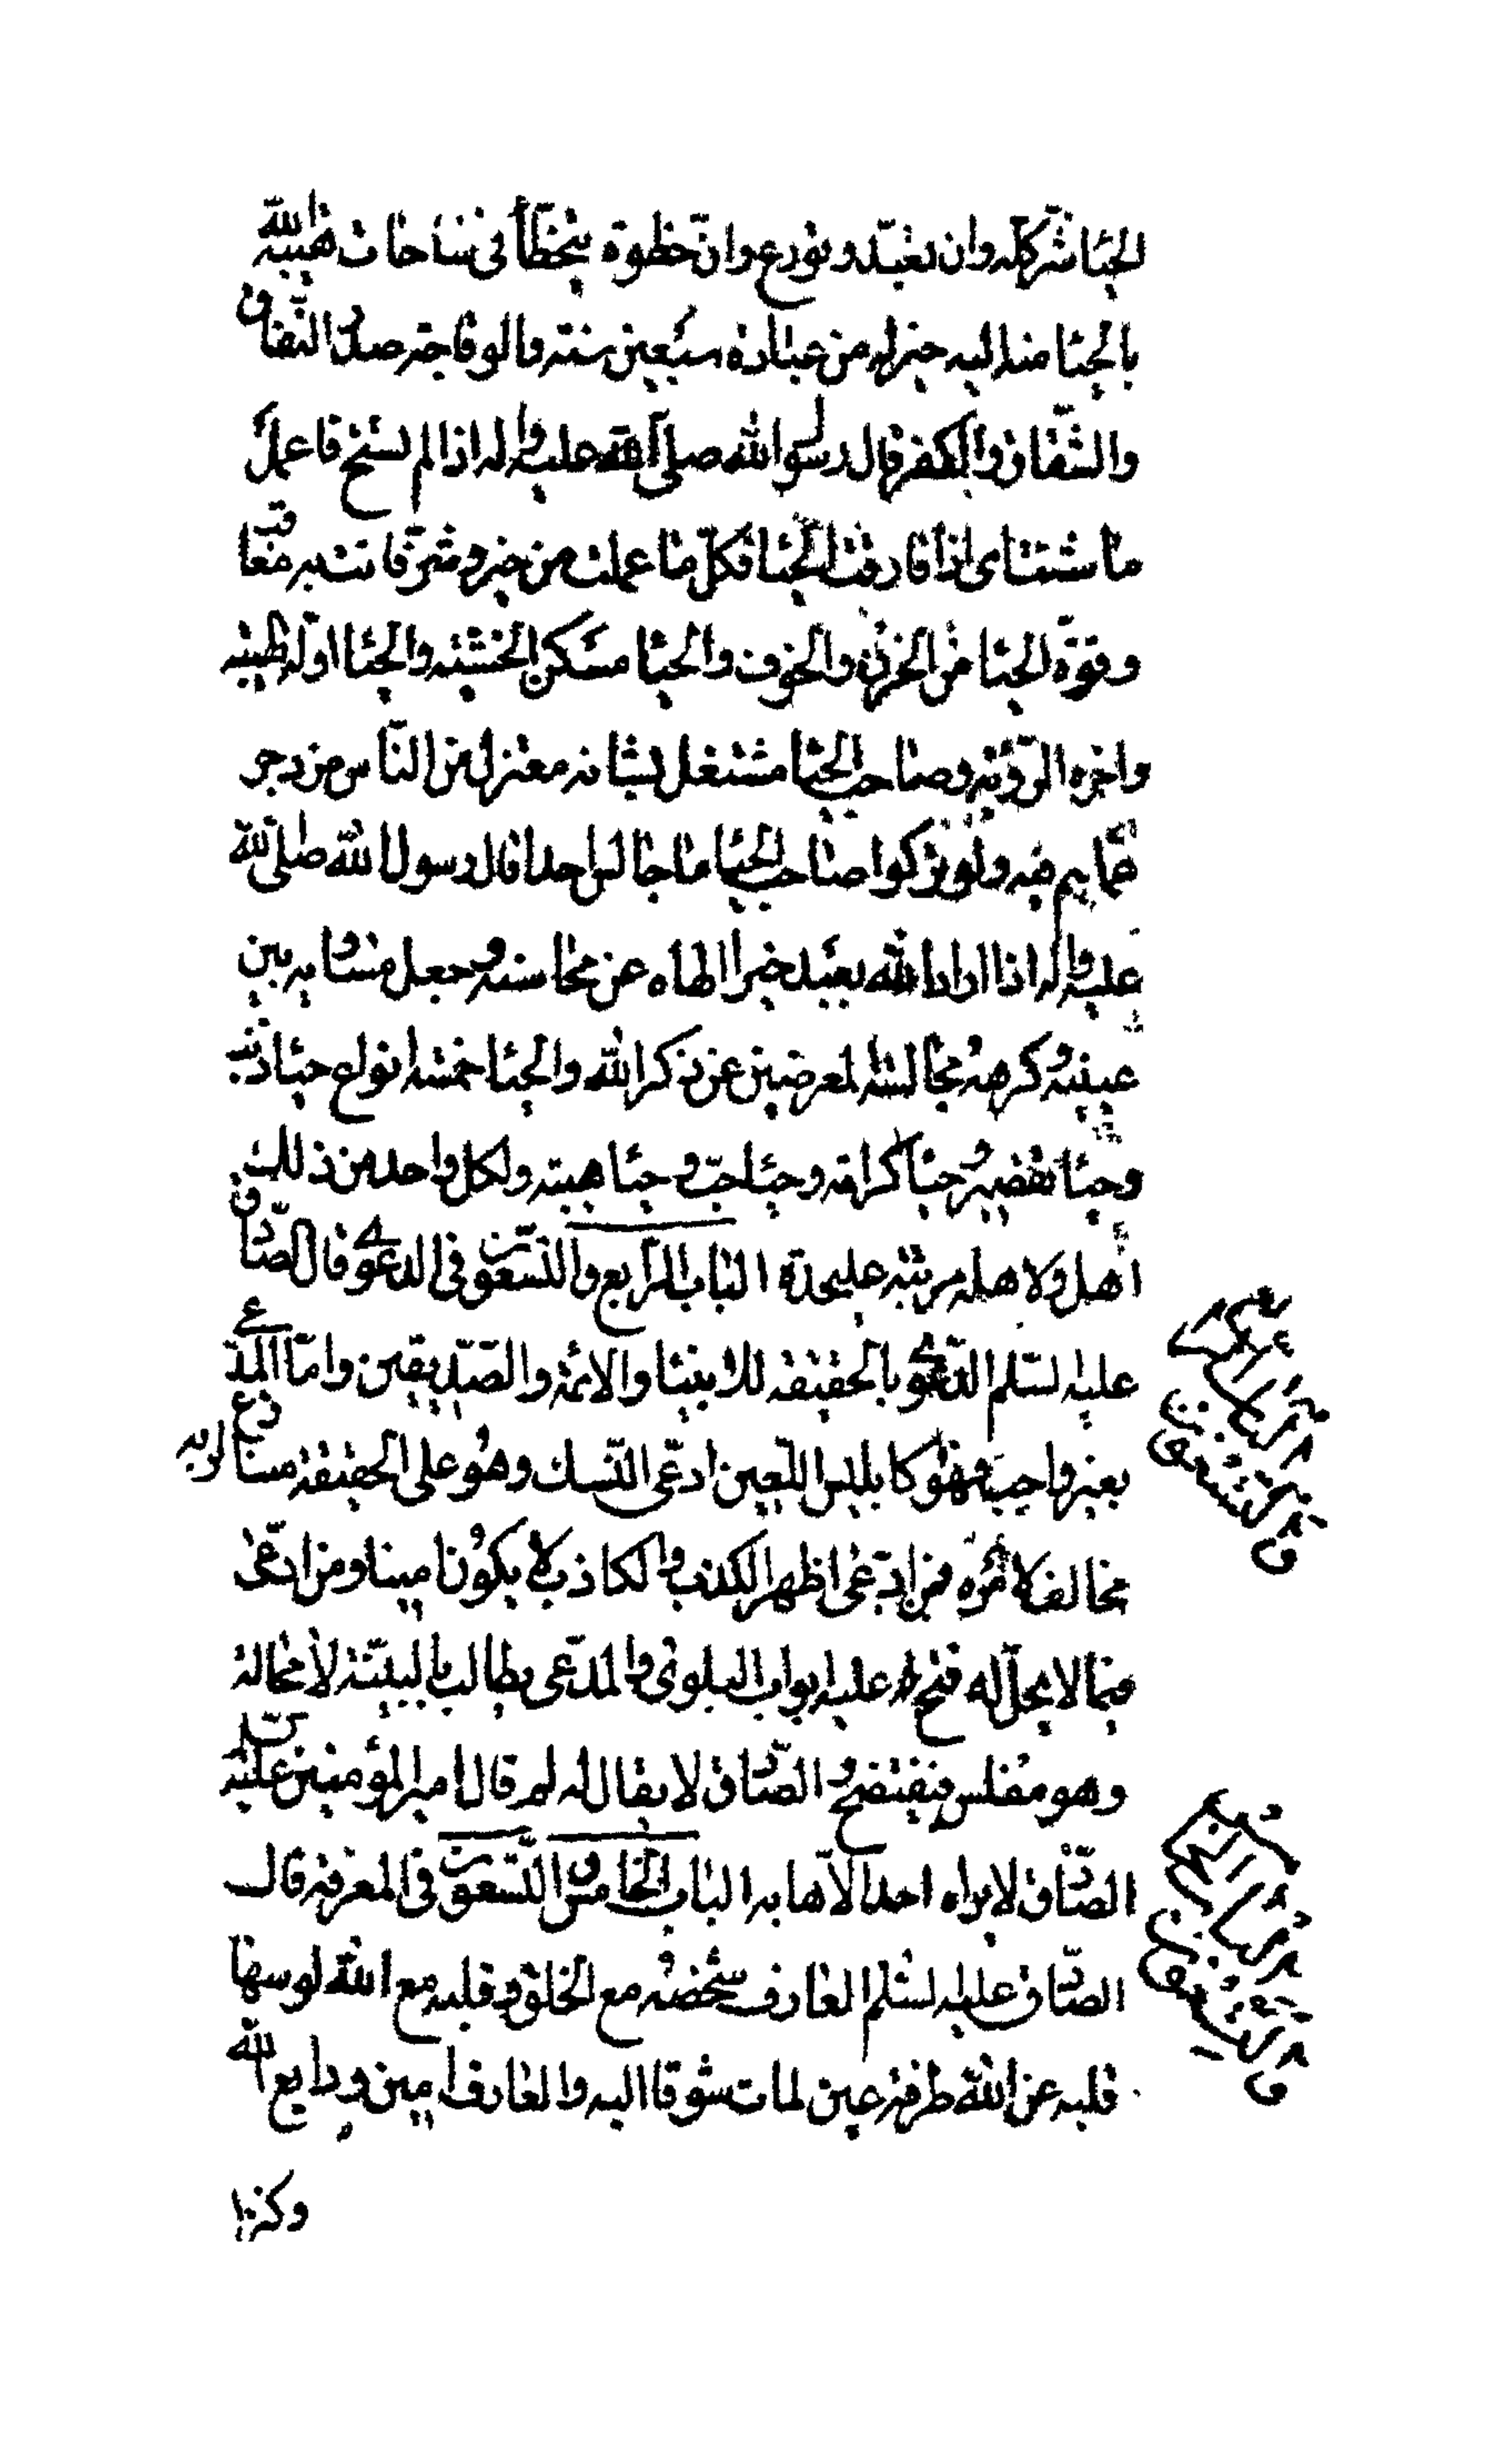 الحيا شر كله وان تعبد وتورع وان خطوة يتخطأ في ساحات هيبة الله
بالحيا منه اليه خير له من عبادة سبعين سنة والوقاحة صدر النفاق
والشقاق والكفر قال رسول الله صلى الله عليه واله اذا لم تستح فاعمل
ما شئت اى اذا فارقت الحيا فكل ما عملت من خير وشر فانت به معاقب
وقوة الحيا من الحزن والخوف والحيا مسكن الخشية والحيا اوله الهيبة
واخره الرؤية وصاحب الحيا مشتغل بشانه معتزل من الناس مزدجر
عما هم فيه ولو تركوا صاحب الحيا ما جالس احدا قال رسول الله صلى الله
عليه واله اذا اراد الله بعبد خيرا الهاه عن محاسنه وجعل مساويه بين
عينيه وكرهه مجالسة المعرضين عن ذكر الله والحيا خمسة انواع حيا ذنب
وحيا تقصير وحيا كرامة وحيا حب وحيا هيبة ولكل واحد من ذلك
اهل ولاهله مرتبة عليحدة الباب الرابع والتسعون في الدعوى قال الصادق
عليه السلم الدعوى بالحقيقة للانبيا والائمة والصديقين واما المدعى
بغير واجب فهو كابليس اللعين ادعى النسك وهو على الحقيقة منازع لربه
مخالف لامره فمن ادعى اظهر الكذب والكاذب لا يكون امينا ومن ادعى
فيما لا يحل له فتح عليه ابواب البلوى والمدعى يطالب بالبينة لا محالة
وهو مفلس فيفتضح والصادق لا يقال له لم قال امير المؤمنين عليه السلم
الصادق لا يراه احد الا هابه الباب الخامس والتسعون في المعرفة قال
الصادق عليه السلم العارف شخصه مع الخلق وقلبه مع الله لو سها
قلبه عن الله طرفة عين لمات شوقا اليه والعارف امين ودايع الله
وكنز